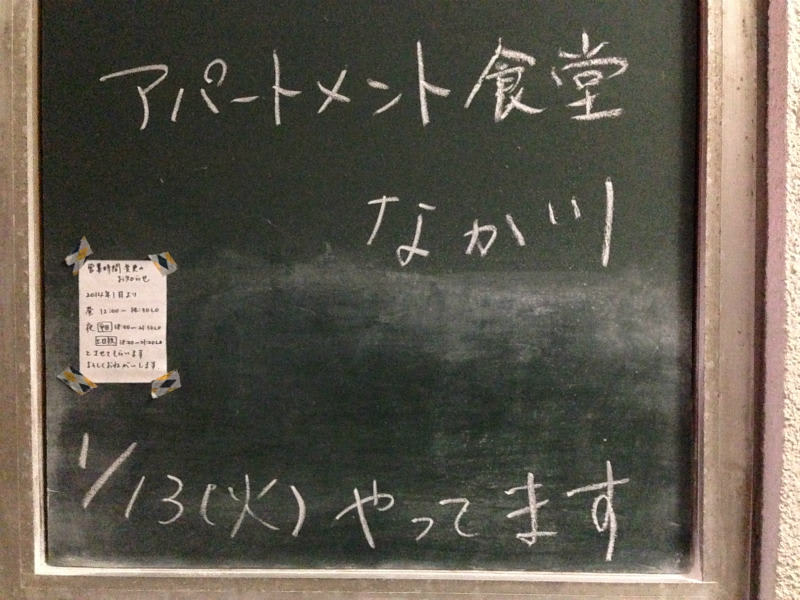 アパートメント食堂
なか川
営業時間変更の
お知らせ
2014年1月より
昼 12:00〜14:30LO
夜 平日 18:00〜21:30LO
土日祝 18:00〜21:00LO
とさせてもらいます
よろしくおねがいします
1/13(火) やってます